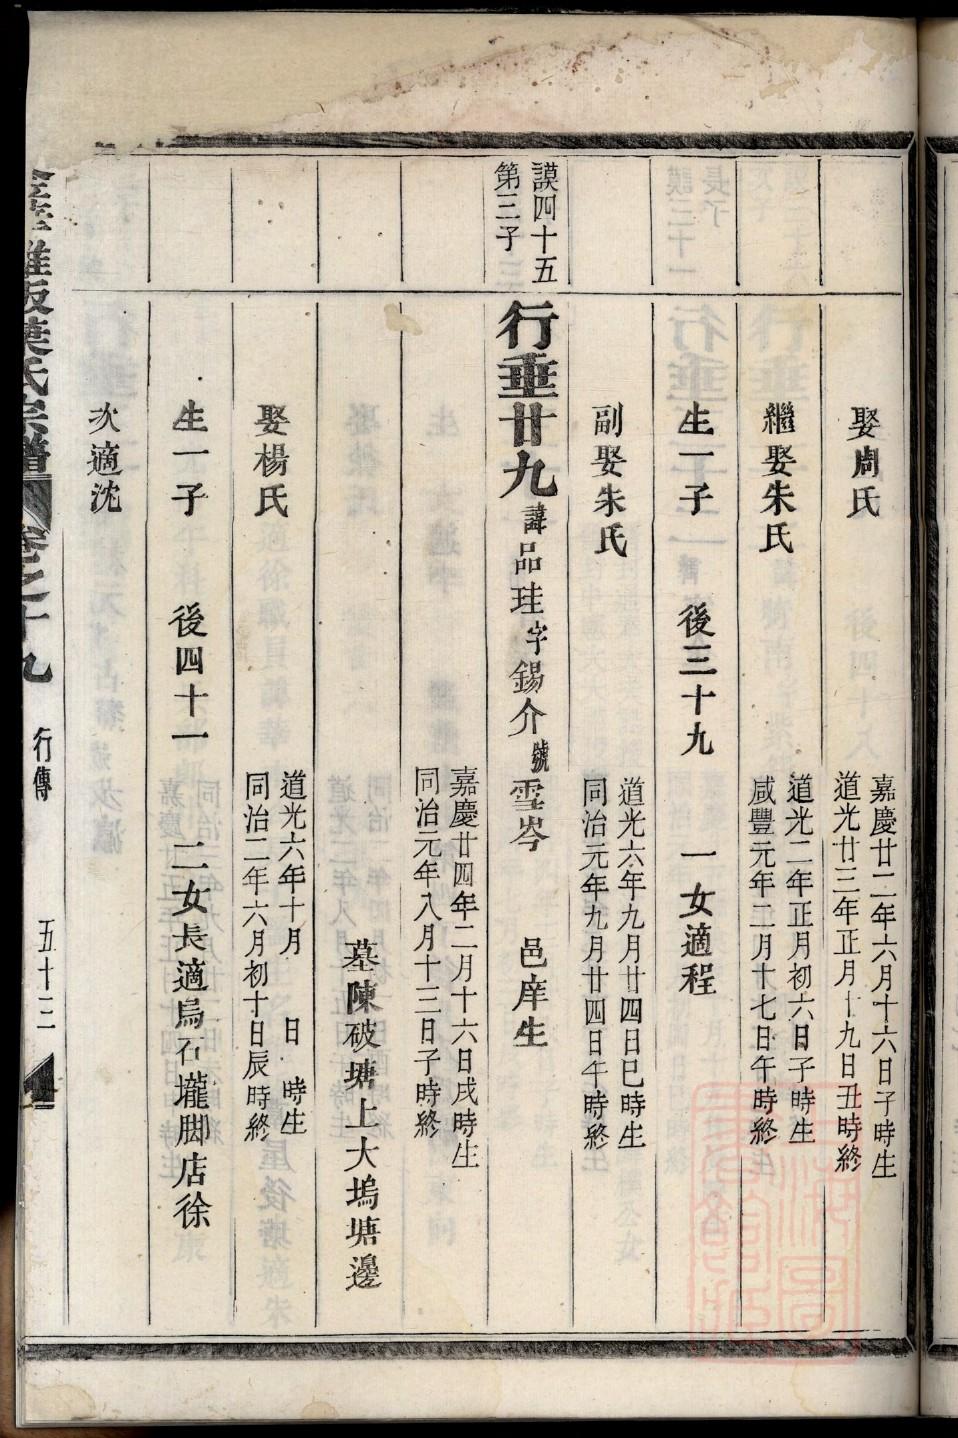 娶周氏
嘉慶廿二年六月十六日子時生
道光廿三年正月十九日丑時終
繼娶朱氏
道光二年正月初六日子時生
咸豐元年二月十七日午時終
生一子 後三十九 一女適程
副娶朱氏
道光六年九月廿四日巳時生
同治元年九月廿四日午時終
謨四十五
第三子
行垂廿九 諱品珪字錫介號雪岑 邑庠生
嘉慶廿四年二月十六日戌時生
同治元年八月十三日子時終
墓陳破塘上大塢塘邊
娶楊氏
道光六年十月 日 時生
同治二年六月初十日辰時終
生一子 後四十一 二女長適烏石壠脚店徐
次適沈
葉氏宗譜 卷之十九 行傳 五十三